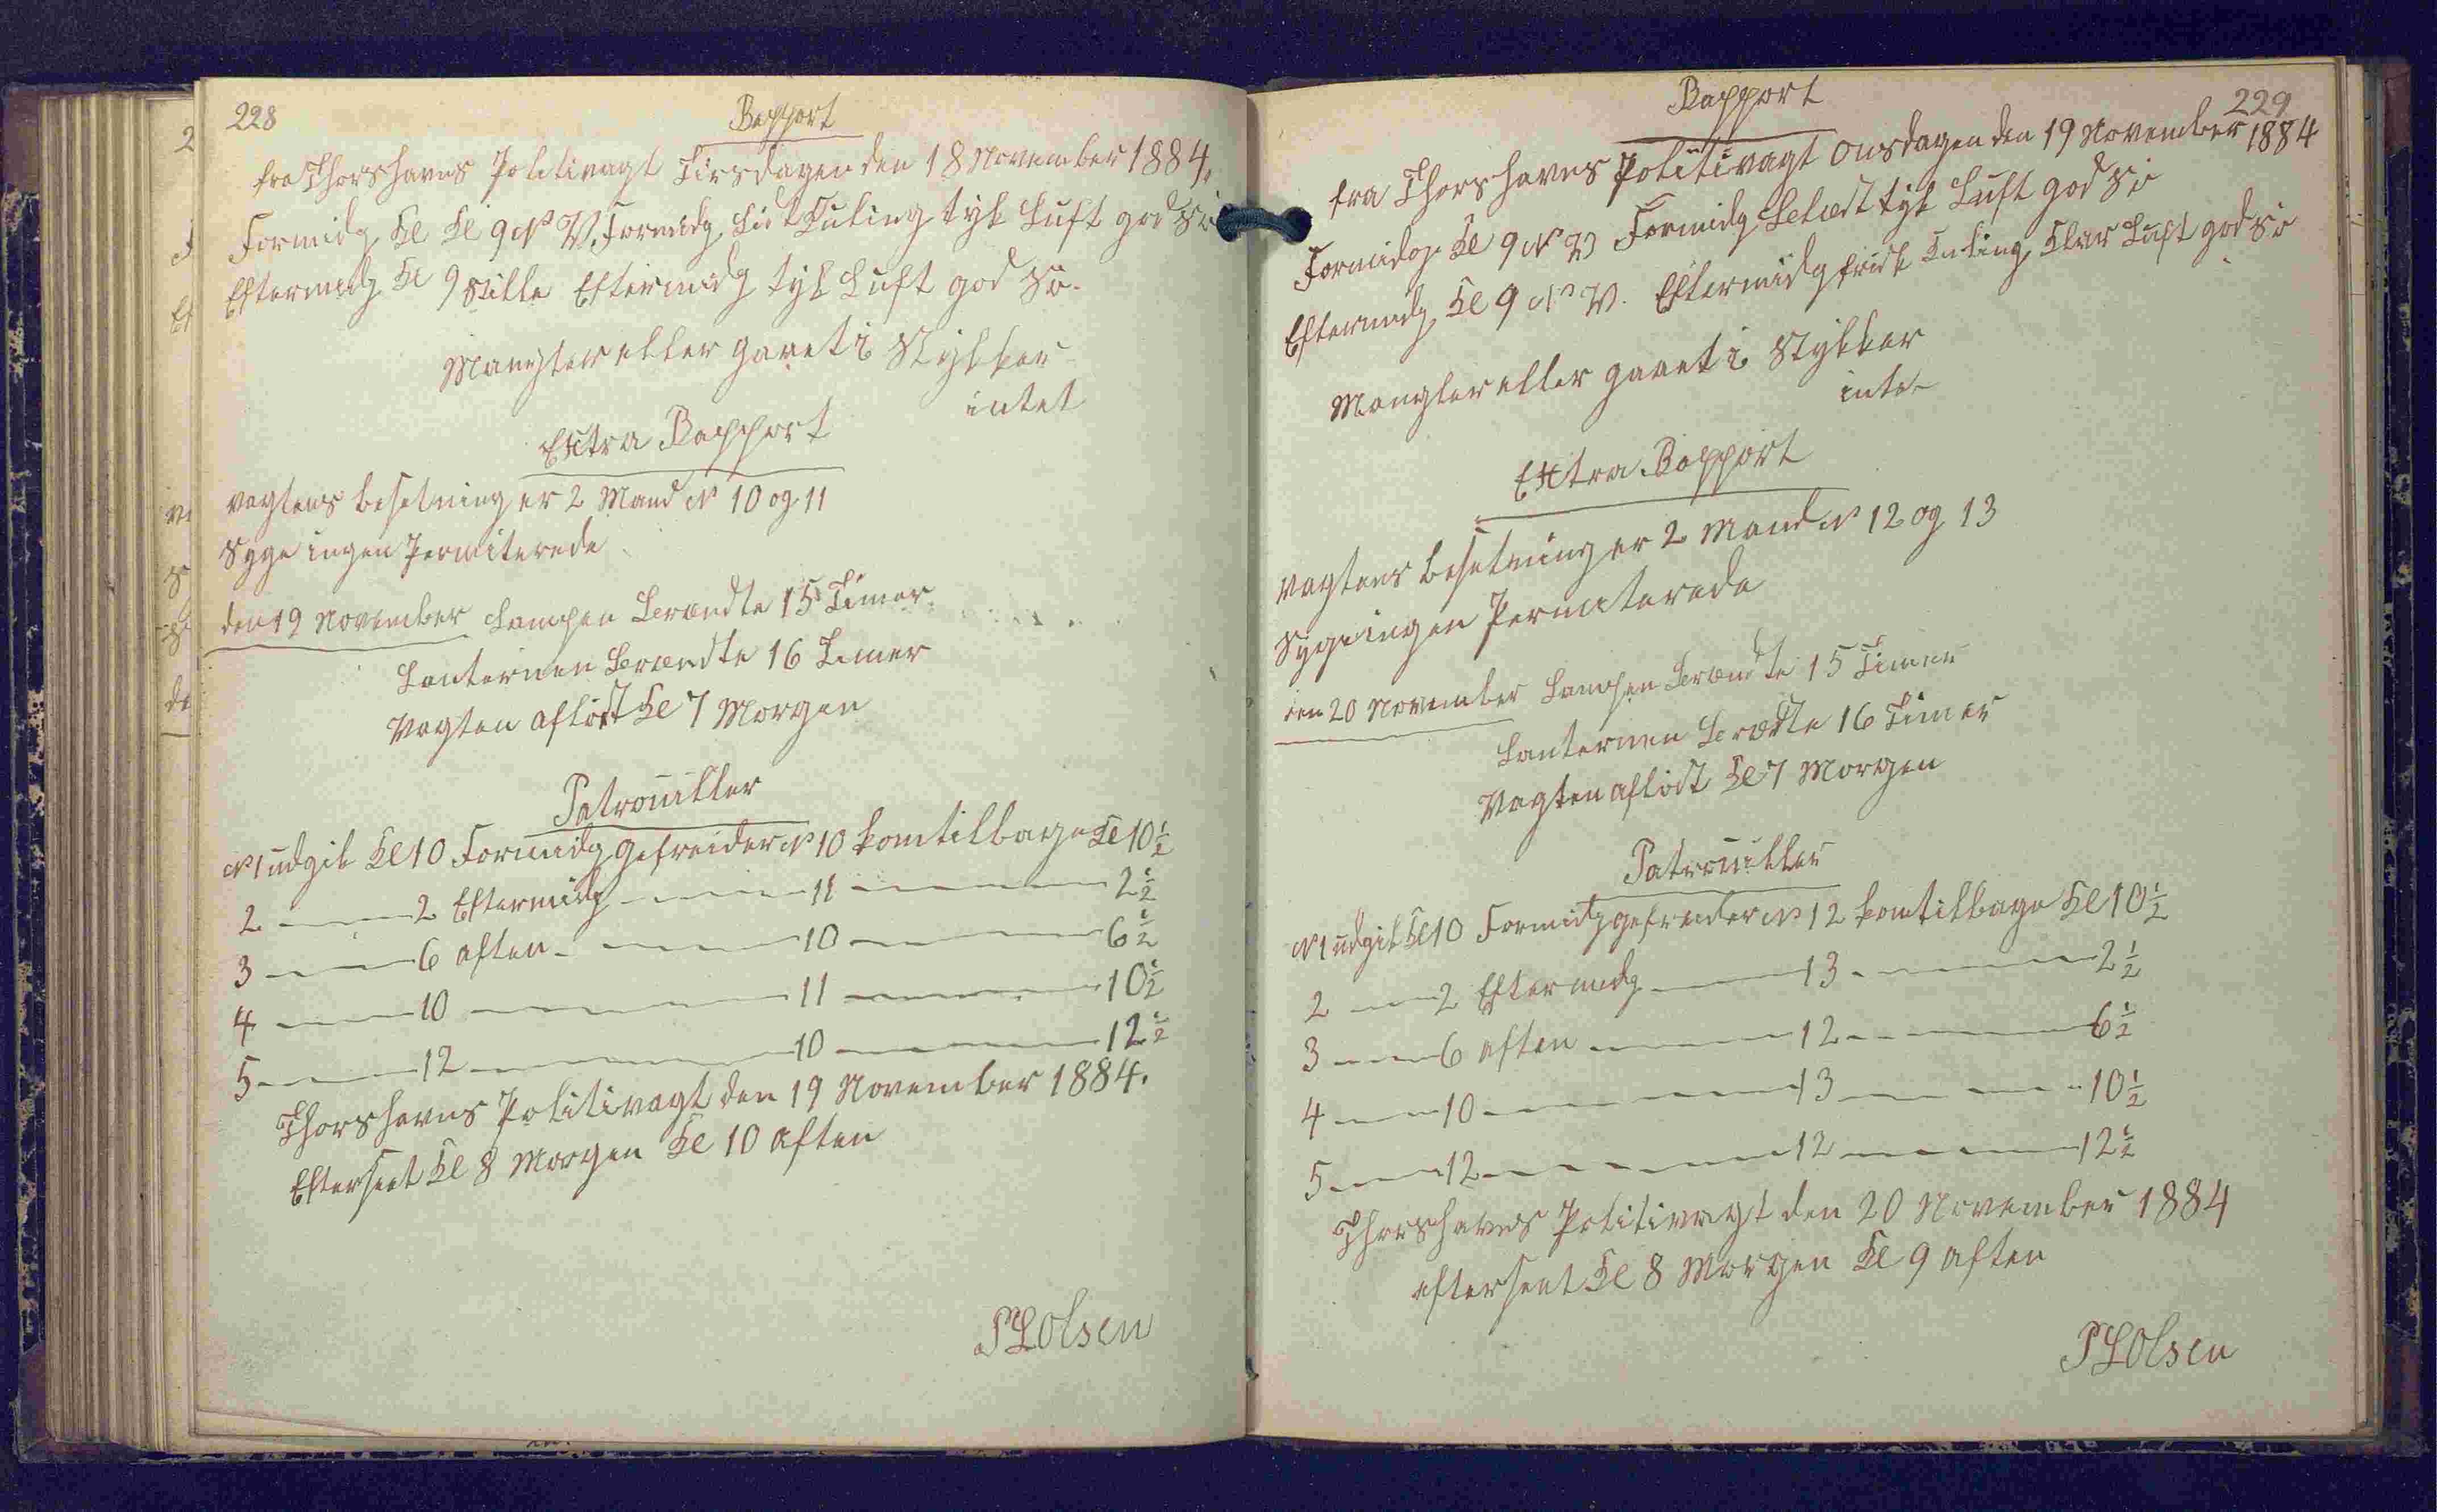 228
Rapport
fra Thorshavns Politivagt Tirsdagen den 18 November 1884.
Formidg Kl Kl 9 N V. Formidg. Lidt Kuling tyk Luft god Sö
Eftermidg Kl 9 Stille Eftermidg tyk Luft god Sö.
Mangler eller gaaet i Stykker
intet
Extra Rapport
Vagtens Besetning er 2 Mand N 10 og 11
Syge ingen Permiterede
den 19 November Lampen Brændte 15 Timer.
Lanternen Brændte 16 Timer
Vagten aflöst Kl 7 Morgen
Patrouiller
N 1 udgik Kl 10 Formidg Gefreider N 10 kom tilbage Kl 10 1/2
2 — 2 Eftermidg — 11 — 2 1/2
3 — 6 Aften — 10 — 6 1/2
4 — 10 — 11 — 10 1/2
5 — 12 — 10 — 12 1/2
Thorshavns Politivagt den 19 November 1884.
Efterseet Kl 8 Morgen Kl 10 Aften
P L Olsen
229
Rapport
fra Thorshavns Politivagt Onsdagen den 19 November 1884
Formidg. Kl 9 N V Formidg tyk Luft god Sö
Eftermidg Kl 9 N V. Eftermidg frisk Kuling Klar Luft god Sö
Mangler eller gaaet i Stykker
inte
Extra Rapport
Vagtens Besetning er 2 Mand N 12 og 13
Syge ingen Permiterede
den 20 November Lampen Brændte 15 Timer
Lanternen Brædte 16 Timer
Vagten aflöst Kl 7 Morgen
Patrouiller
N 1 udgik Kl 10 Formidg gefreider N 12 kom tilbage Kl 10 1/2
2 — 2 Eftermidg — 13 — 2 1/2
3 — 6 Aften — 12 — 6 1/2
4 — 10 — 13 — 10 1/2
5 — 12 — 12 — 12 1/2
Thorshavns Politivagt den 20 November 1884
efterseet Kl 8 Morgen Kl 9 Aften
P L Olsen